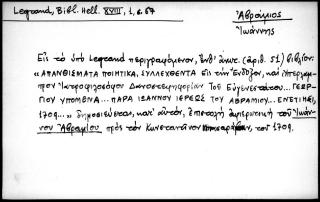 Legrand, Bibl. Hell. XVIII, 1, σ. 67
Ἀβράμιος
Ἰωάννης
Εἰς τὸ ὑπὸ Legrand περιγραφόμενον, ἔνθ' ἀνωτ. (ἀριθ. 51) βιβλίον:
«ΑΠΑΝΘΙΣΜΑΤΑ ΠΟΙΗΤΙΚΑ, ΣΥΛΛΕΧΘΕΝΤΑ ΕΙΣ τὴν Ἔνδοξον, καὶ
Δανοστεμηφορίαν Τοῦ Εὐγενεστάτου... ΓΕΩΡ-
ΓΙΟΥ ΥΠΟΜΟΝΑ... ΠΑΡΑ ΙΩΑΝΝΟΥ ΙΕΡΕΩΣ ΤΟΥ ΑΒΡΑΜΙΟΥ... ΕΝΕΤΙΗΣΙ,
1709...» δημοσιεύεται, κατ' αὐτόν, ἐπιστολὴ ἀφιερωτικὴ τοῦ Ἰωάν-
νου Ἀβραμίου πρὸς τὸν Κωνσταντῖνον τοῦ 1709.